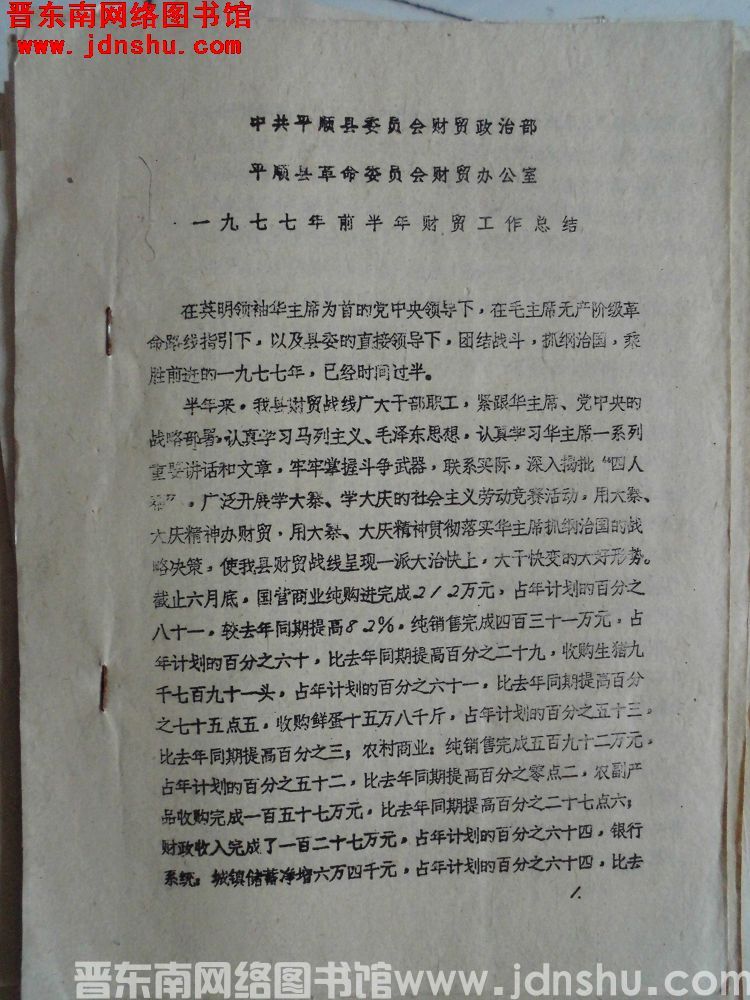 晋东南网络图书馆
www.jdnshu.com
中共平顺县委员会财贸政治部
平顺县革命委员会财贸办公室
一九七七年前半年财贸工作总结
在英明领袖华主席为首的党中央领导下，在毛主席无产阶级革
命路线指引下，以及县委的直接领导下，团结战斗，抓纲治国，乘
胜前进的一九七七年，已经时间过半。
半年来，我县财贸战线广大干部职工，紧跟华主席、党中央的
战略部署，认真学习马列主义、毛泽东思想，认真学习华主席一系列
重要讲话和文章，牢牢掌握斗争武器，联系实际，深入揭批“四人
帮”，广泛开展学大寨、学大庆的社会主义劳动竞赛活动，用大寨、
大庆精神办财贸，用大寨、大庆精神贯彻落实华主席抓纲治国的战
略决策，使我县财贸战线呈现一派大治快上，大干快变的大好形势。
截止六月底，国营商业纯购进完成212万元，占年计划的百分之
八十一，较去年同期提高82%，纯销售完成四百三十一万元，占
年计划的百分之六十，比去年同期提高百分之二十九，收购生猪九
千七百九十一头，占年计划的百分之六十一，比去年同期提高百分
之七十五点五，收购鲜蛋十五万八千斤，占年计划的百分之五十三，
比去年同期提高百分之三；农村商业：纯销售完成五百九十二万元，
占年计划的百分之五十二，比去年同期提高百分之零点二，农副产
品收购完成一百五十七万元，比去年同期提高百分之二十七点六；
财政收入完成了一百二十七万元，占年计划的百分之六十四，银行
系统：城镇储蓄净增六万四千元，占年计划的百分之六十四，比去
1.
晋东南网络图书馆www.jdnshu.com